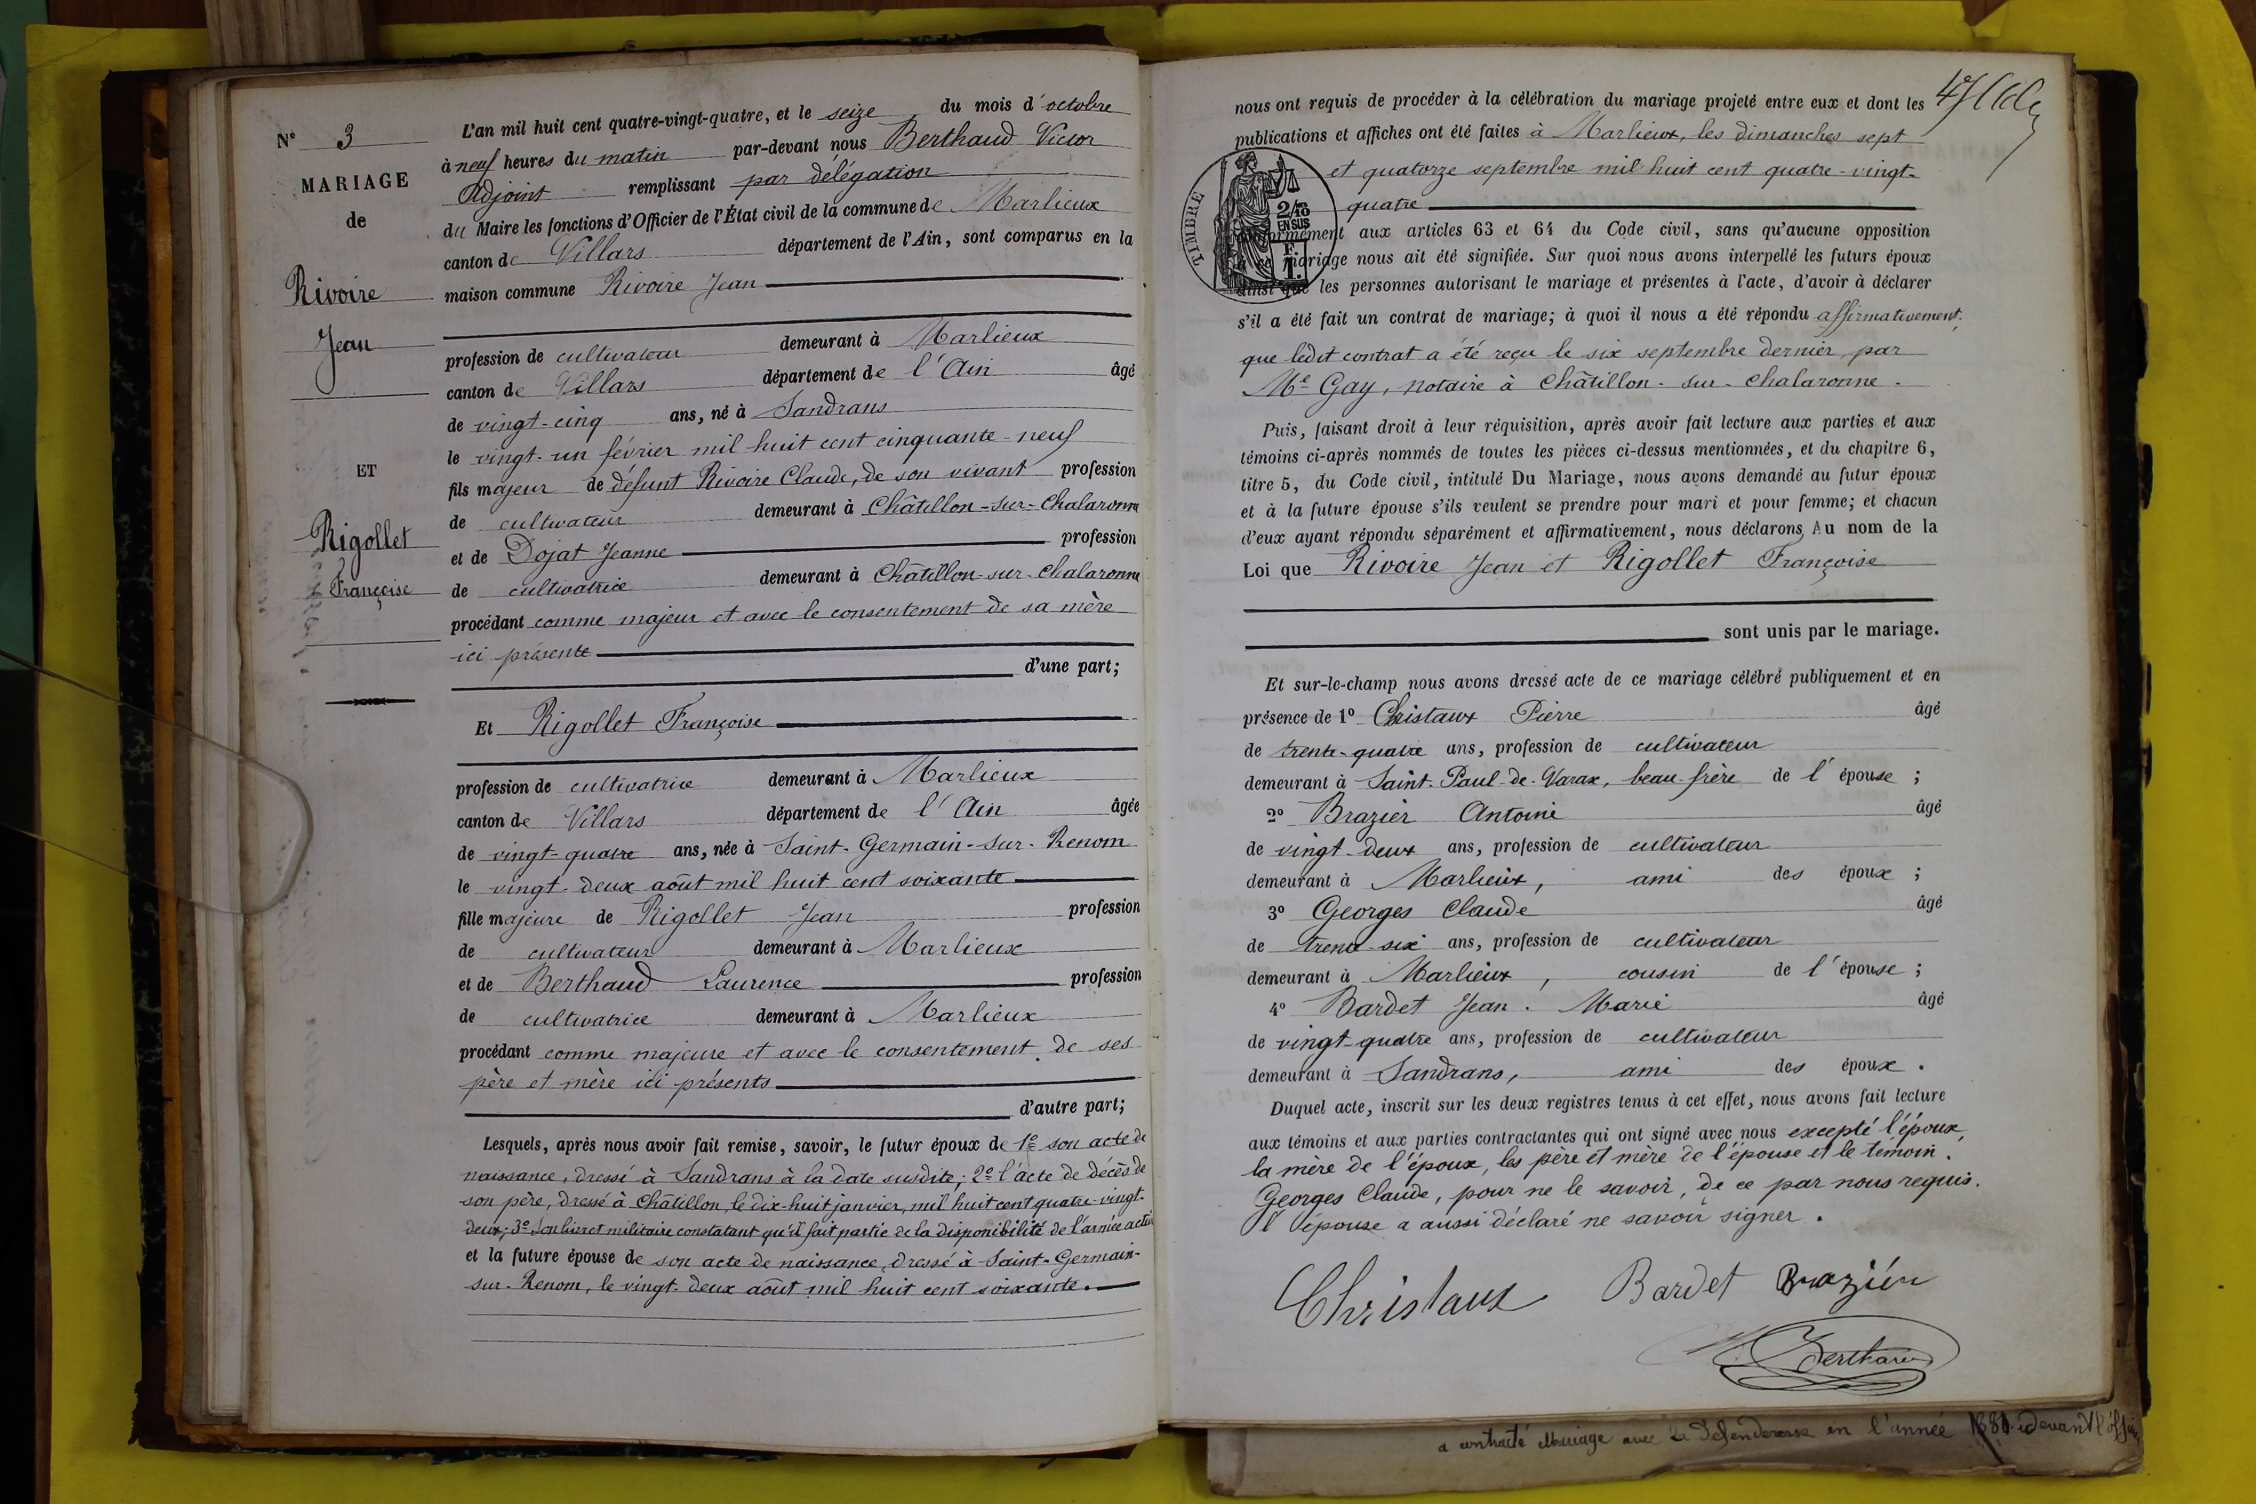 N° 3
MARIAGE
de
Rivoire
Jean
ET
Rigollet
Françoise
L'an mil huit cent quatre-vingt-quatre, et le seize du mois d'octobre
à neuf heures du matin par-devant nous Berthaud Victor
Adjoint remplissant par délégation
du Maire les fonctions d'Officier de l'État civil de la commune de Marlieux
canton de Villars département de l'Ain, sont comparus en la
maison commune Rivoire Jean
profession de cultivateur demeurant à Marlieux
canton de Villars département de l'Ain âgé
de vingt-cinq ans, né à Sandrans
le vingt-un février mil huit cent cinquante-neuf
fils majeur de défunt Rivoire Claude, de son vivant profession
de cultivateur demeurant à Châtillon-sur-Chalaronne
et de Dojat Jeanne profession
de cultivatrice demeurant à Châtillon-sur-Chalaronne
procédant comme majeur et avec le consentement de sa mère
ici présente
d'une part;
Et Rigollet Françoise
profession de cultivatrice demeurant à Marlieux
canton de Villars département de l'Ain âgée
de vingt-quatre ans, née à Saint-Germain-sur-Renom
le vingt-deux août mil huit cent soixante
fille majeure de Rigollet Jean profession
de cultivateur demeurant à Marlieux
et de Berthaud Laurence profession
de cultivatrice demeurant à Marlieux
procédant comme majeure et avec le consentement de ses
père et mère ici présents
d'autre part;
Lesquels, après nous avoir fait remise, savoir, le futur époux de 1° son acte de
naissance, dressé à Sandrans à la date susdite; 2° l'acte de décès de
son père, dressé à Châtillon, le dix-huit janvier, mil huit cent quatre-vingt-
deux; 3° son livret militaire constatant qu'il fait partie de la disponibilité de l'armée active
et la future épouse de son acte de naissance, dressé à Saint-Germain-
sur-Renom, le vingt-deux août mil huit cent soixante.
nous ont requis de procéder à la célébration du mariage projeté entre eux et dont les
publications et affiches ont été faites à Marlieux, les dimanches sept
et quatorze septembre mil huit cent quatre-vingt-
quatre
TIMBRE
2/10
EN SUS
F.
1.
conformément aux articles 63 et 64 du Code civil, sans qu'aucune opposition
à ce mariage nous ait été signifiée. Sur quoi nous avons interpellé les futurs époux
ainsi que les personnes autorisant le mariage et présentes à l'acte, d'avoir à déclarer
s'il a été fait un contrat de mariage; à quoi il nous a été répondu affirmativement.
que ledit contrat a été reçu le six septembre dernier, par
Me Gay, notaire à Châtillon-sur-Chalaronne.
Puis, faisant droit à leur réquisition, après avoir fait lecture aux parties et aux
témoins ci-après nommés de toutes les pièces ci-dessus mentionnées, et du chapitre 6,
titre 5, du Code civil, intitulé Du Mariage, nous avons demandé au futur époux
et à la future épouse s'ils veulent se prendre pour mari et pour femme; et chacun
d'eux ayant répondu séparément et affirmativement, nous déclarons Au nom de la
Loi que Rivoire Jean et Rigollet Françoise
sont unis par le mariage.
Et sur-le-champ nous avons dressé acte de ce mariage célébré publiquement et en
présence de 1° Christaux Pierre âgé
de trente-quatre ans, profession de cultivateur
demeurant à Saint-Paul-de-Varax, beau-frère de l'épouse;
2° Brazier Antoine âgé
de vingt-deux ans, profession de cultivateur
demeurant à Marlieux, ami des époux;
3° Georges Claude âgé
de trente-six ans, profession de cultivateur
demeurant à Marlieux, cousin de l'épouse;
4° Bardet Jean-Marie âgé
de vingt-quatre ans, profession de cultivateur
demeurant à Sandrans, ami des époux.
Duquel acte, inscrit sur les deux registres tenus à cet effet, nous avons fait lecture
aux témoins et aux parties contractantes qui ont signé avec nous excepté l'époux,
la mère de l'époux, les père et mère de l'épouse et le témoin.
Georges Claude, pour ne le savoir, de ce par nous requis.
l'épouse a aussi déclaré ne savoir signer.
Christaux Bardet Brazier
V. Berthaud
a contracté Mariage avec la Défenderesse en l'année devant l'